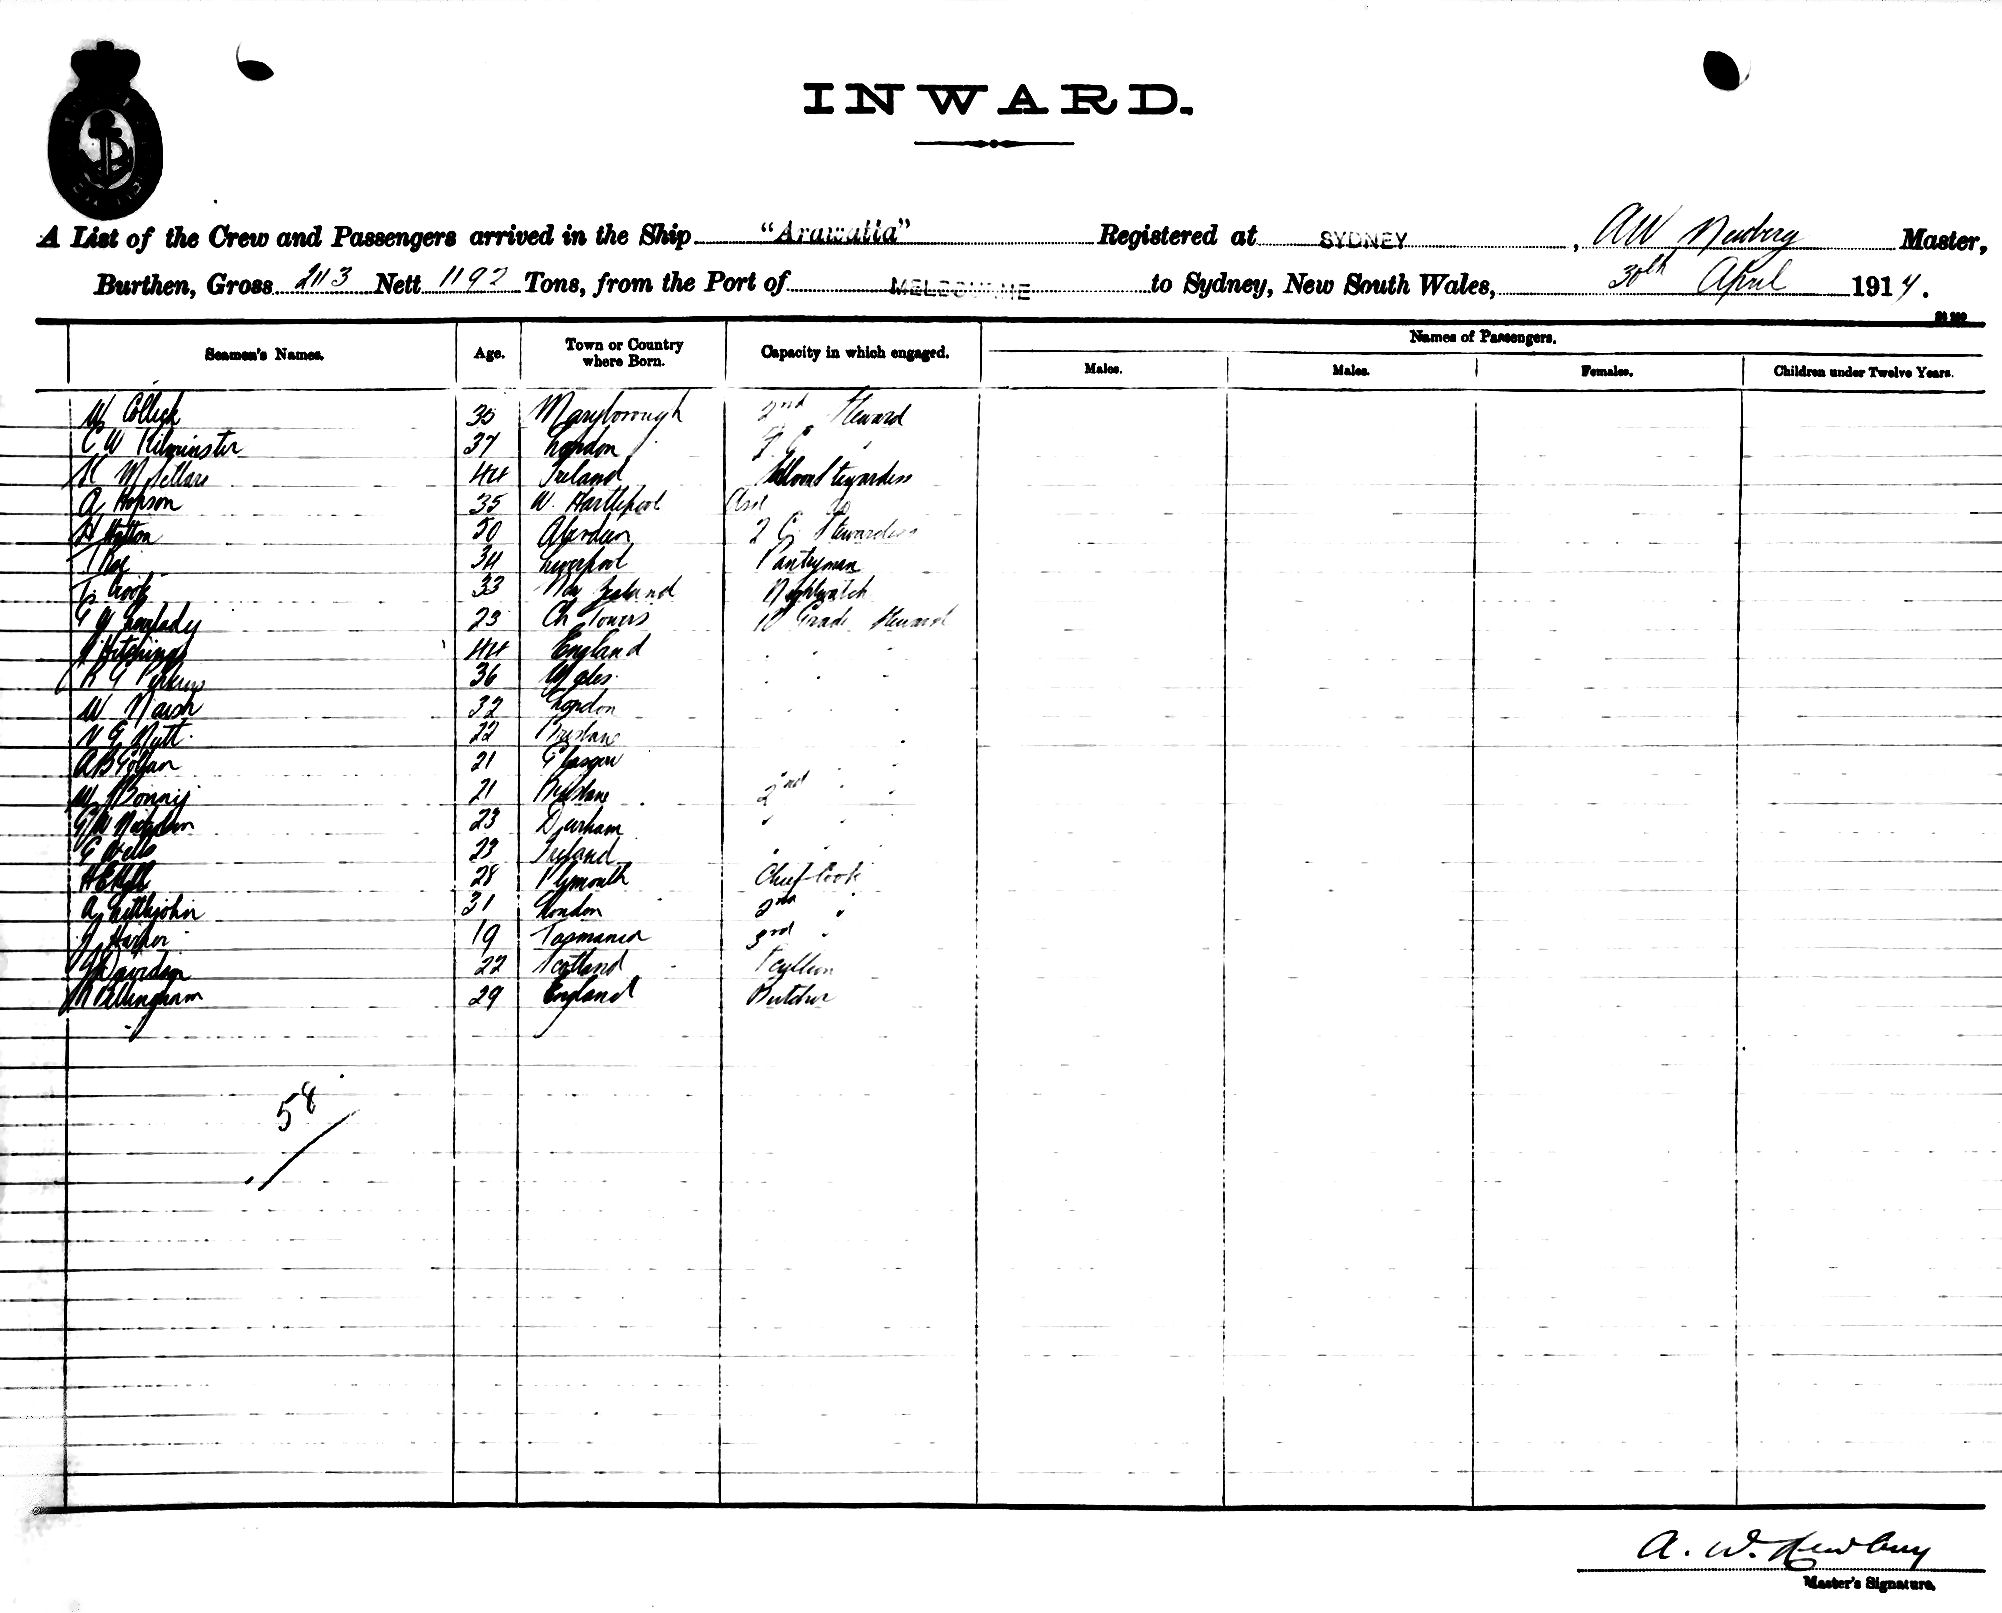 INWARD.
A List of the Crew and Passengers arrived in the Ship "Arawatta" Registered at SYDNEY, AW Newbery Master,
Burthen, Gross 2113 Nett 1192 Tons, from the Port of MELBOURNE to Sydney, New South Wales, 30th April 1914.
Names of Passengers.
Seamen's Names. Age. Town or Country where Born. Capacity in which engaged. Males. Males. Females. Children under Twelve Years.
W Collick 35 Maryborough 2nd Steward
C W Kilminster 37 London
M Sellars 44 Ireland Saloon Stewardess
A Hopson 35 W. Hartlepool Asst do
H Hutton 50 Aberdeen 2 C Stewardess
T Roe 34 Liverpool Pantryman
Crook 33 New Zealand Nightwatch
23 Ch Towers 1st Grade Steward
Hitchings 44 England " " "
R G Perkins 36 Wales " " "
W Naish 32 London " " "
V G Nutt 22 Brisbane
A B Gollan 21 Glasgow
W J Bonney 21 Brisbane 2nd " "
G W Nicholson 23 Durham " " "
G Wells 23 Ireland
H E Hill 28 Plymouth Chief Cook
A Littlejohn 31 London 2nd "
J Harper 19 Tasmania 3rd "
J Davidson 22 Scotland Scullion
R Billingham 29 England Butcher
58
A. W. Newbery
Master's Signature.